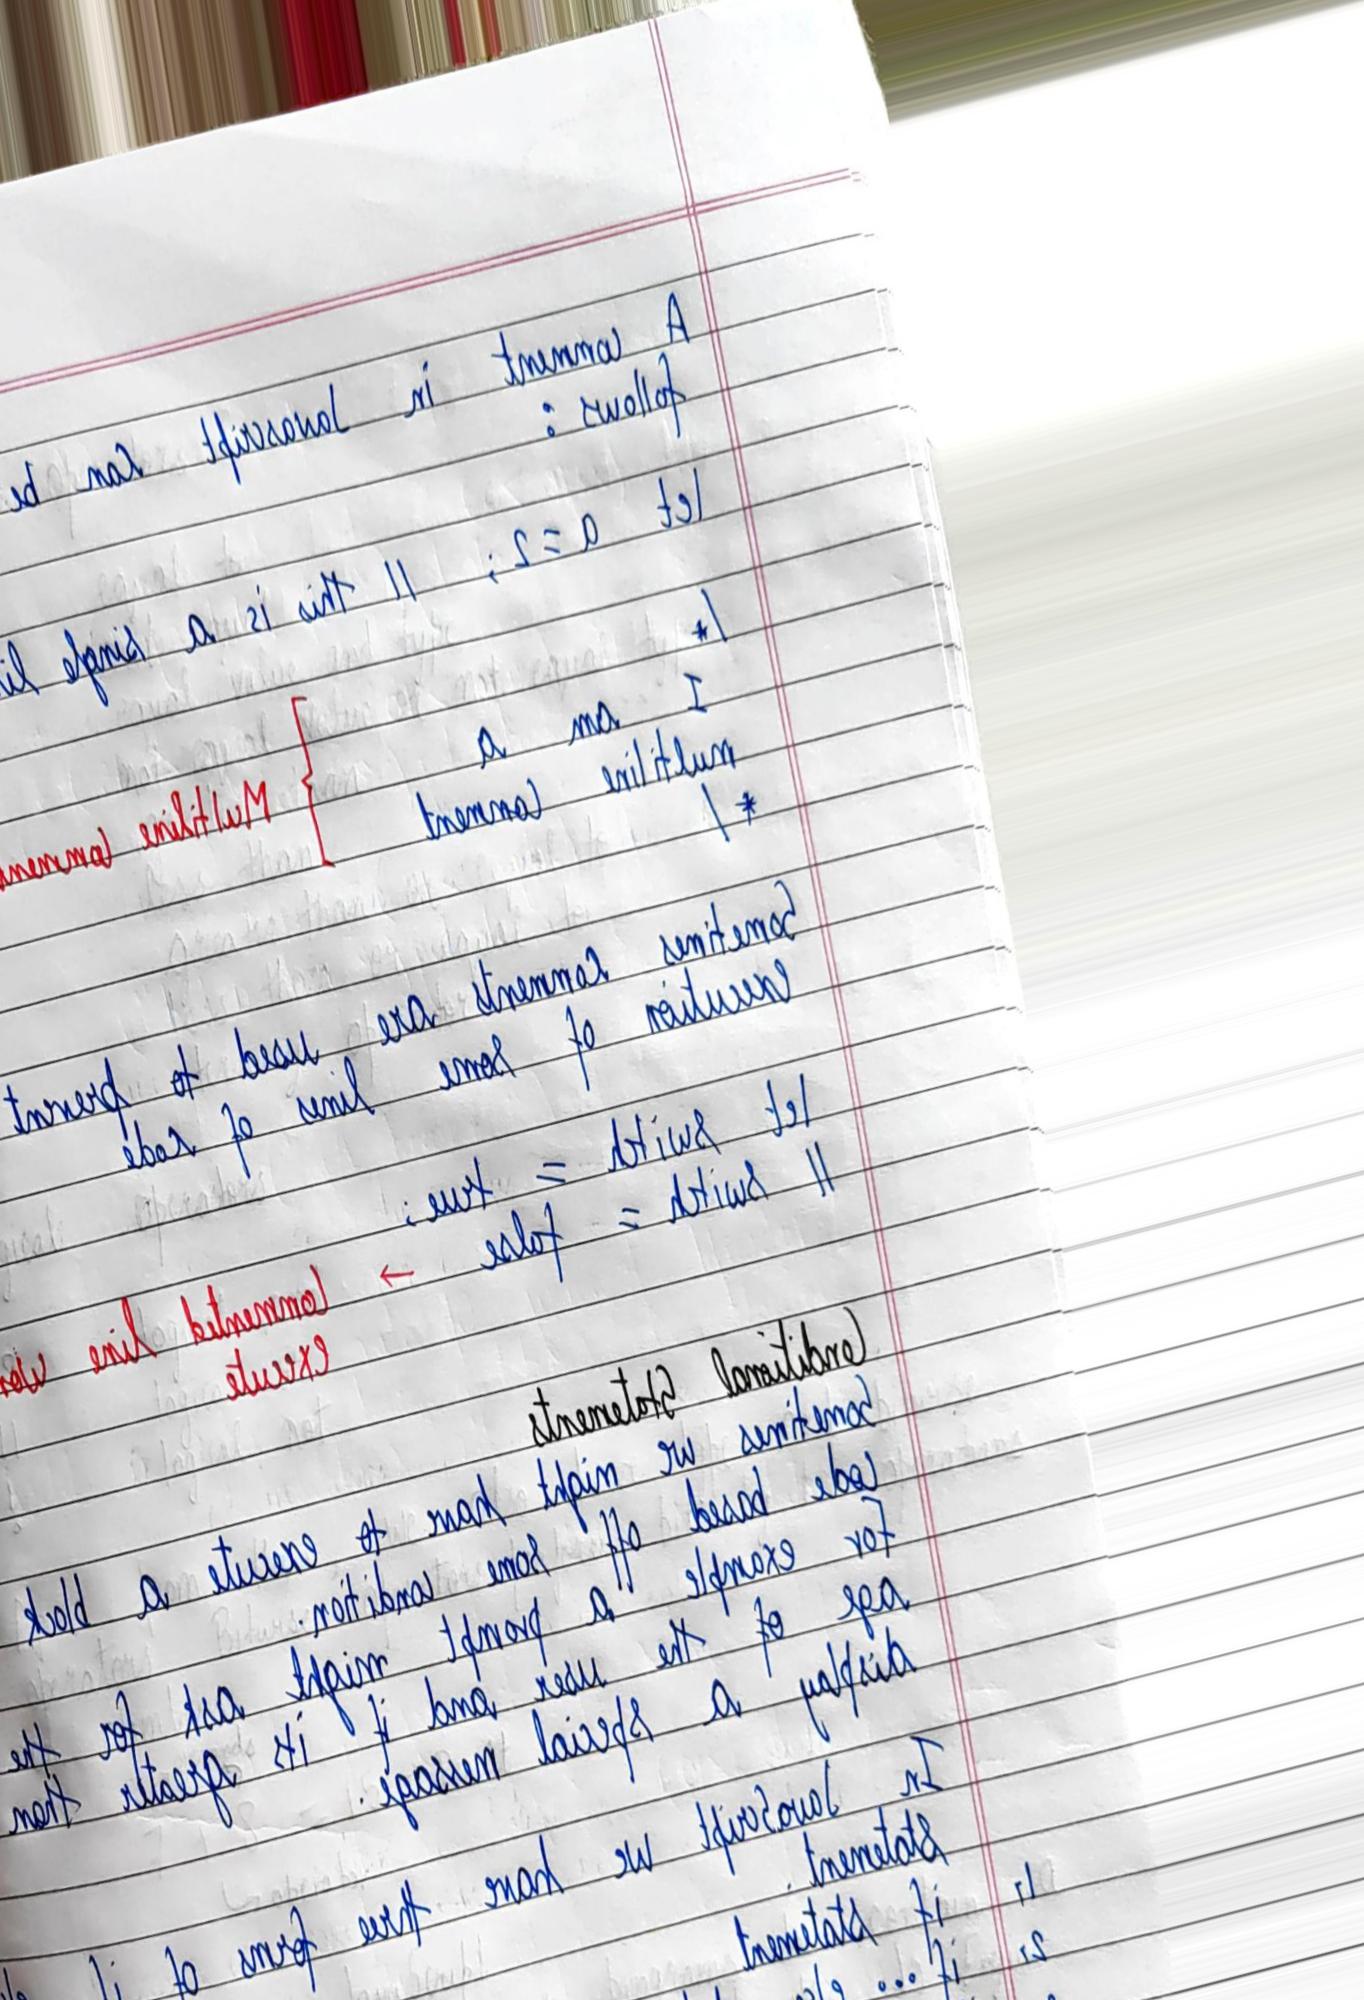 A comment in Javascript can be
follows :
let a = 2; // this is a single
/*
I am a
multiline comment
*/
Multiline
Sometimes comments are used to prevent
execution of some lines of code
let switch = true;
// switch = false → commented line
execute
Conditional Statements
Sometimes we might have to execute a block
code based off some condition.
For example a prompt might ask for the
age of the user and if its greater than
display a special message.
In JavaScript we have three forms of
statement.
1, if statement
2, if ...